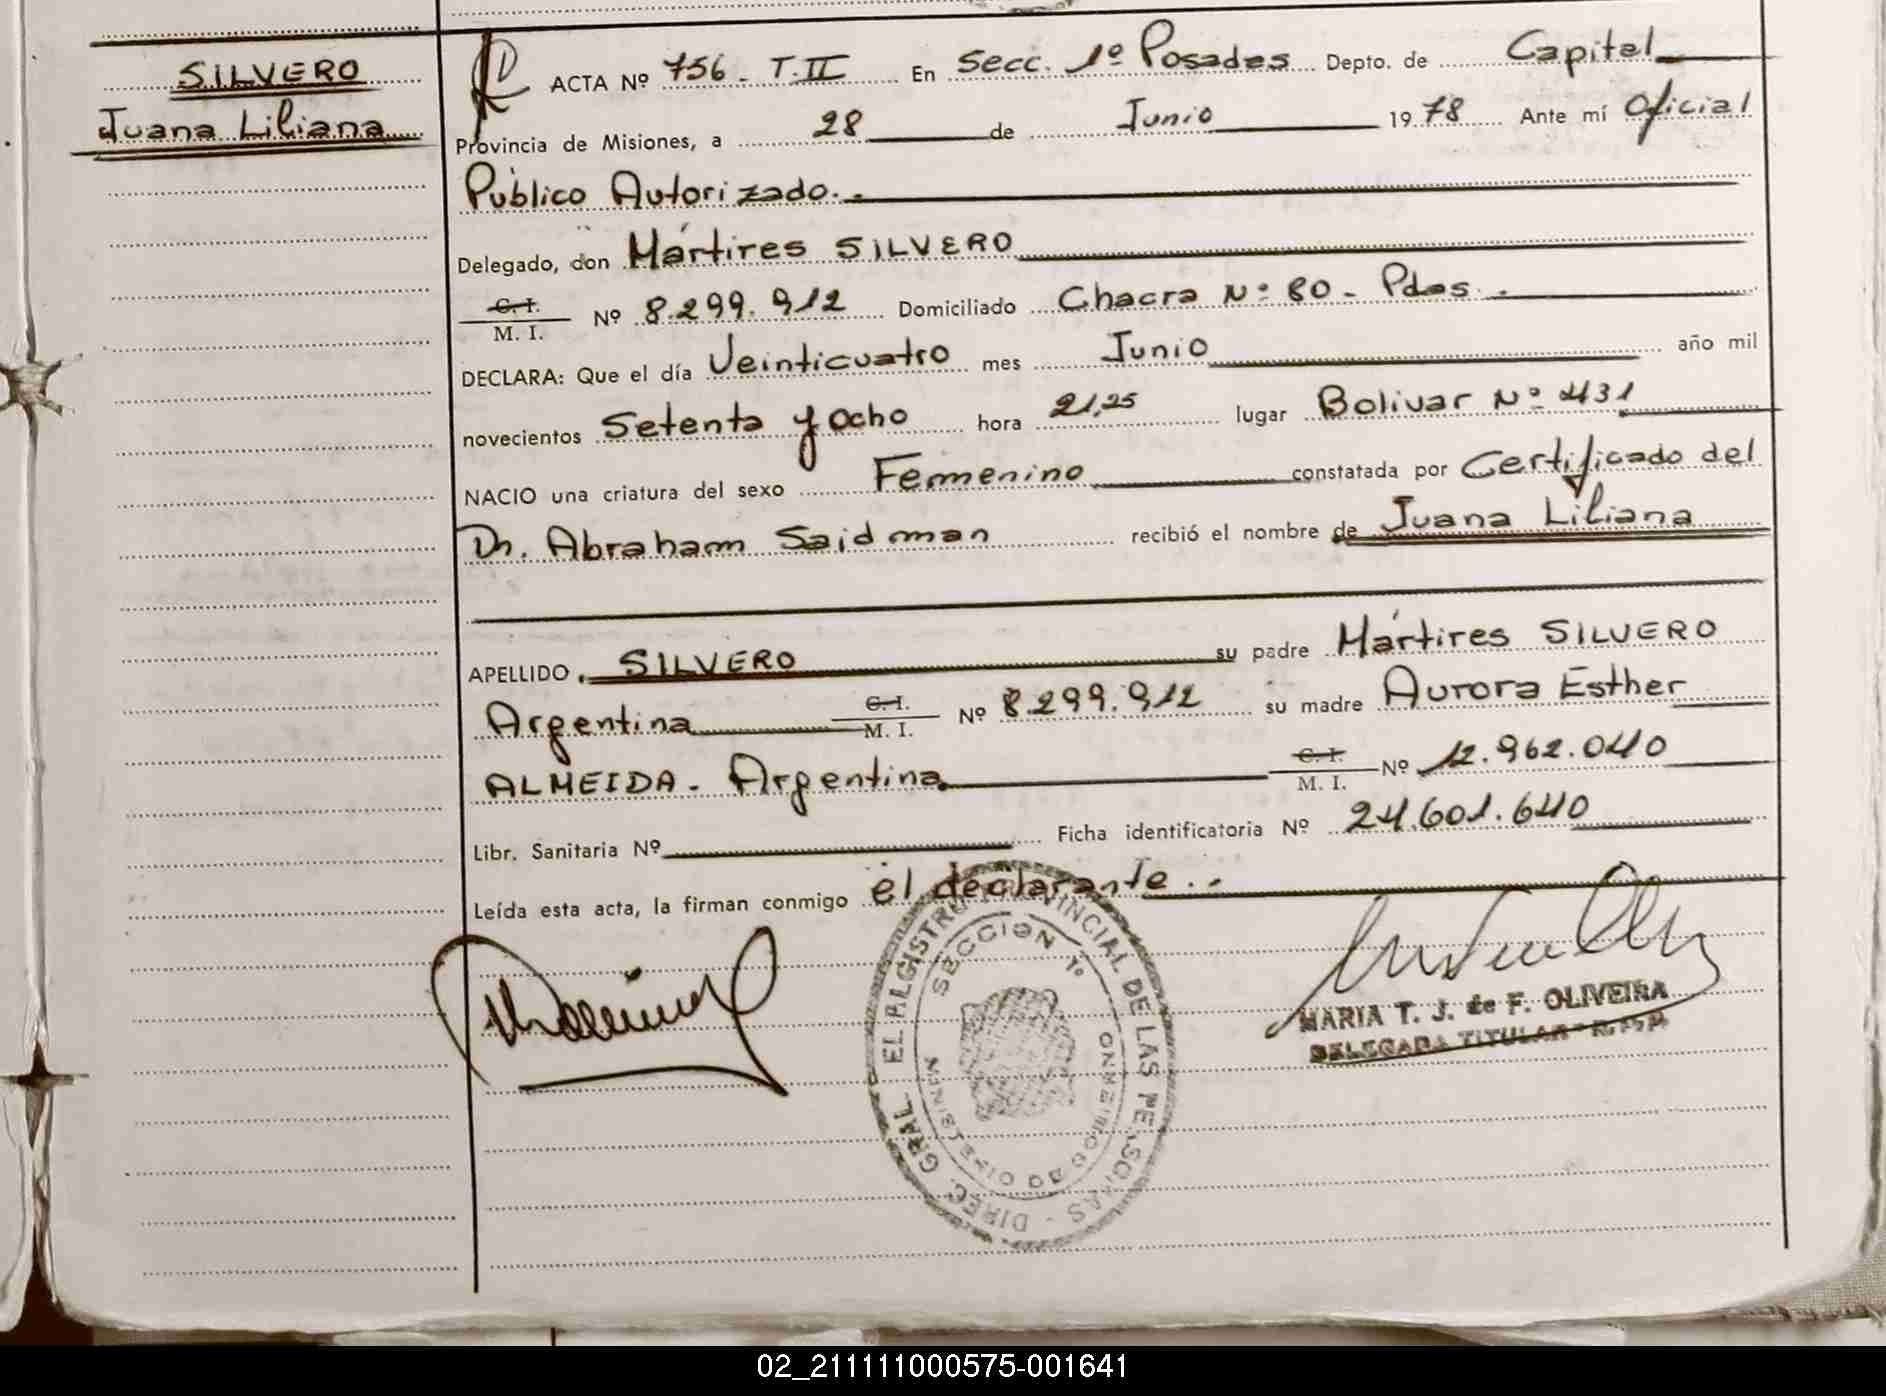 SILVERO
Juana Liliana
ACTA Nº 756 - T.II En Secc. 1º Posadas Depto. de Capital
Provincia de Misiones, a 28 de Junio 1978 Ante mí Oficial
Público Autorizado.-
Delegado, don Mártires SILVERO
C. I.
M. I.
Nº 8.299.912 Domiciliado Chacra Nº 80 - Pdas.
DECLARA: Que el día Veinticuatro mes Junio año mil
novecientos Setenta y Ocho hora 21,25 lugar Bolivar Nº 431
NACIO una criatura del sexo Femenino constatada por Certificado del
Dr. Abraham Saidman recibió el nombre de Juana Liliana
APELLIDO SILVERO su padre Mártires SILVERO
Argentina C. I. M. I. Nº 8.299.912 su madre Aurora Esther
ALMEIDA - Argentina C. I. M. I. Nº 12.962.040
Libr. Sanitaria Nº Ficha identificatoria Nº 24.601.640
Leída esta acta, la firman conmigo el declarante.-
SECCION 1º
MARIA T. J. de F. OLIVEIRA
DELEGADA TITULAR
02_211111000575-001641